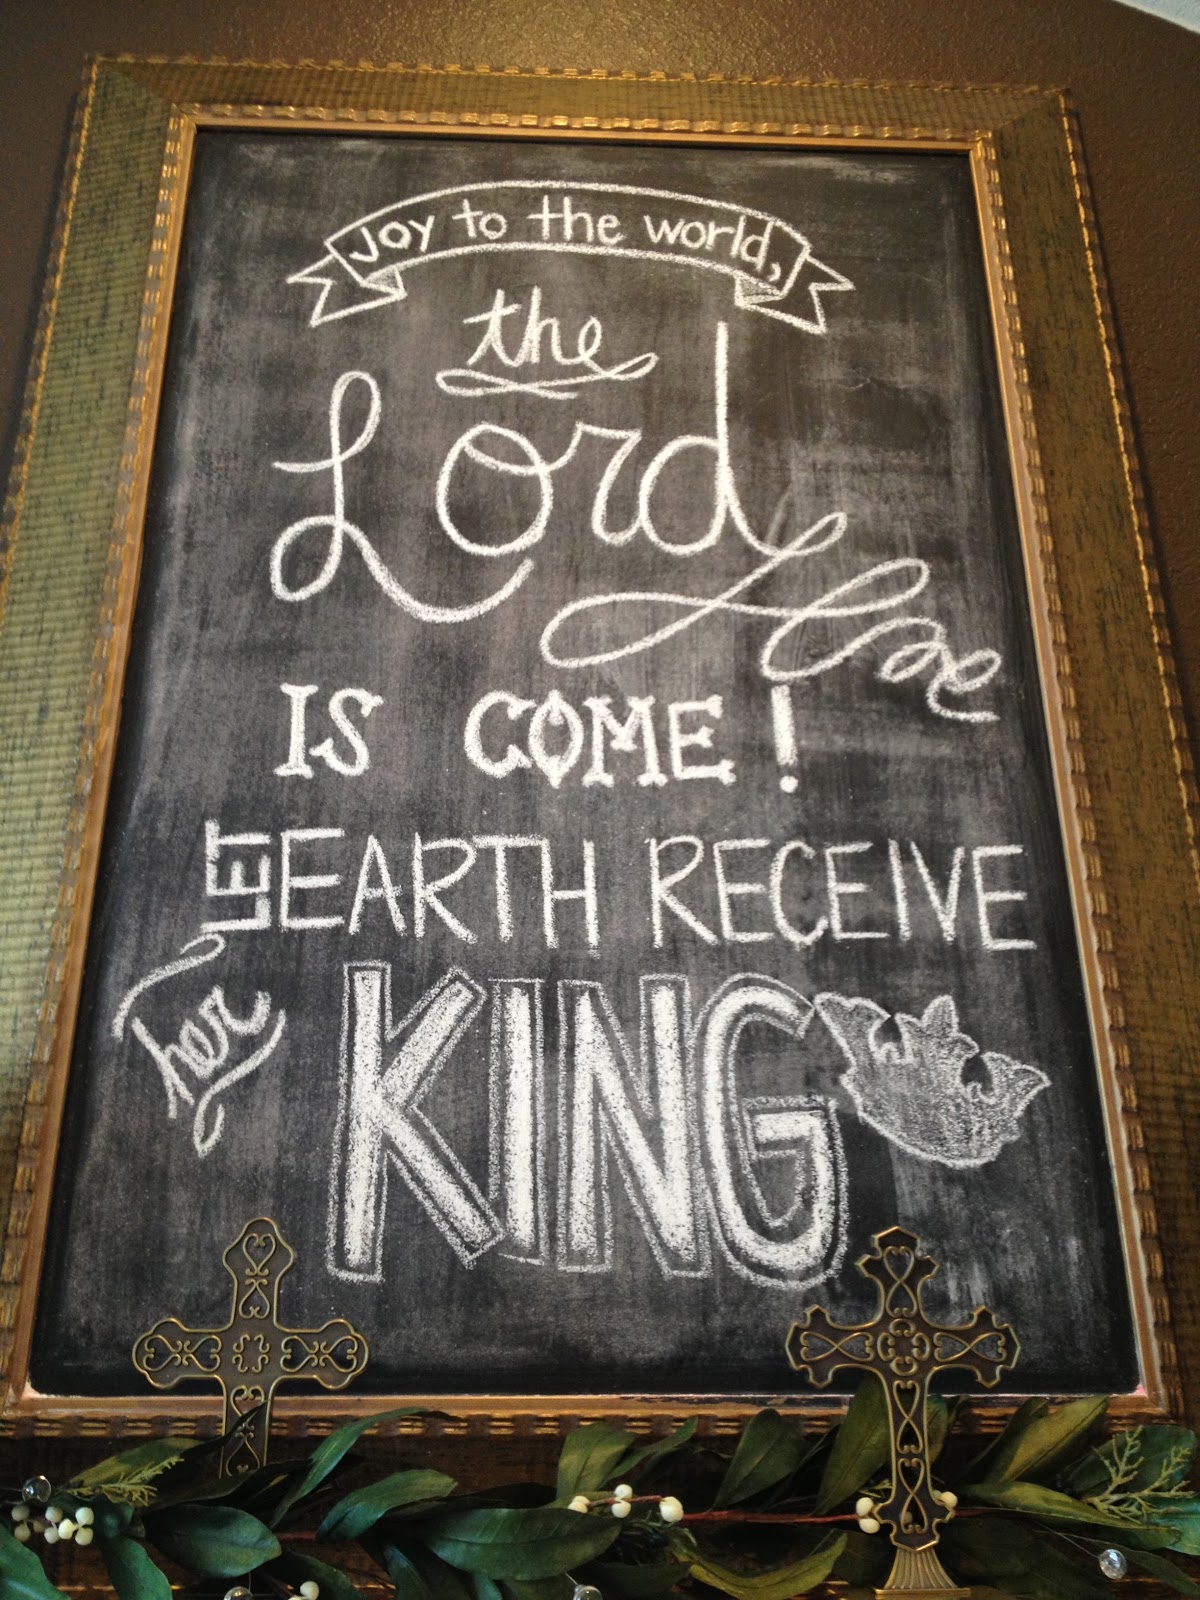 Joy to the world,
the
Lord
IS COME!
LET EARTH RECEIVE
her KING